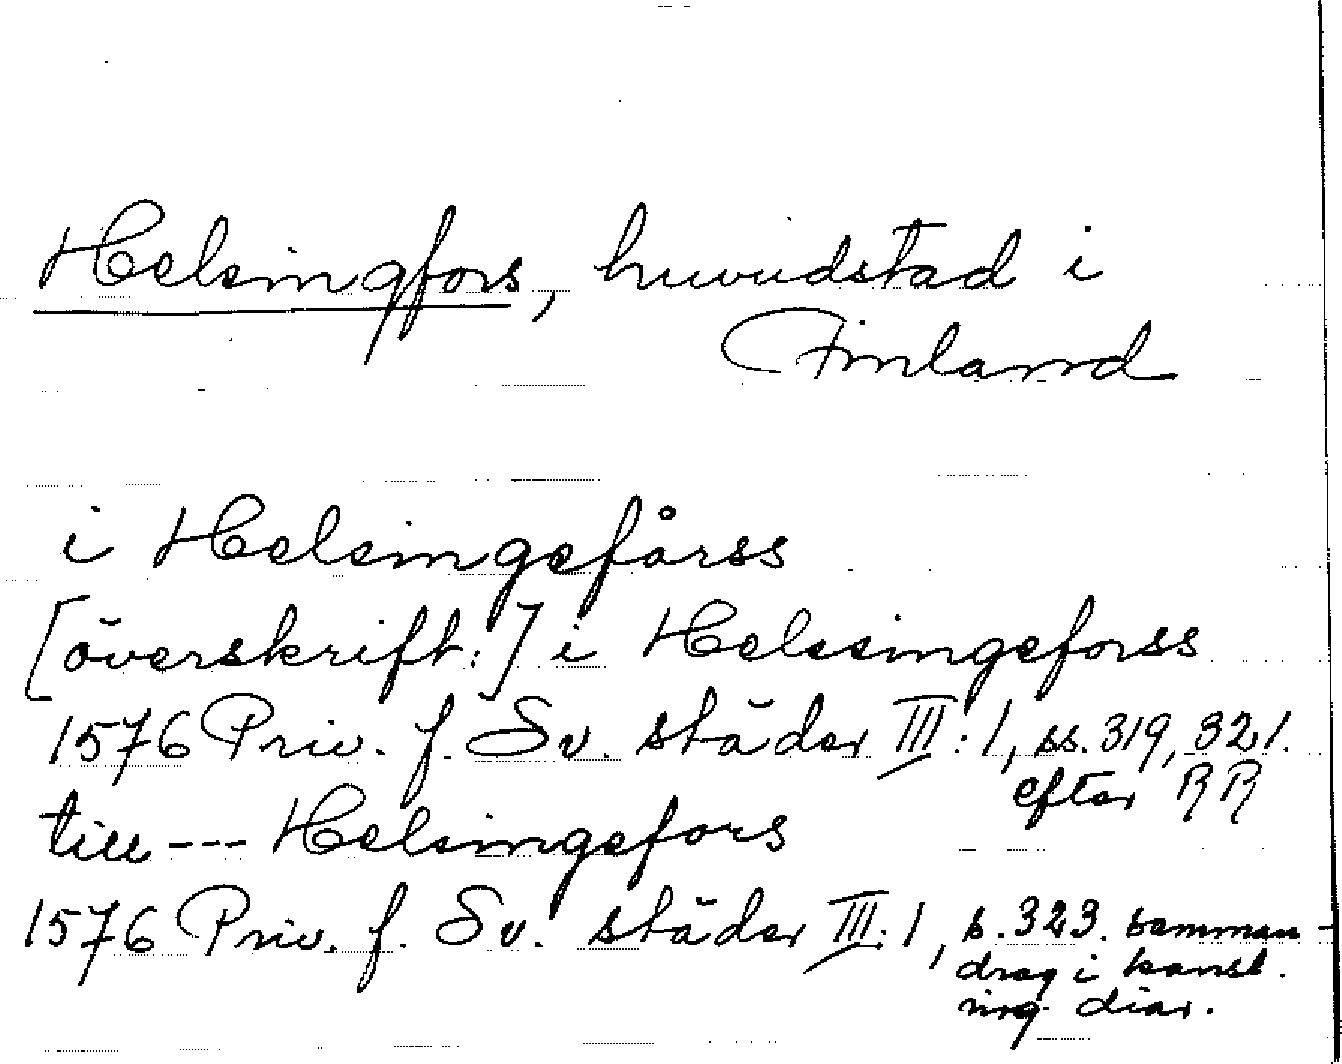 Helsingfors, huvudstad i
Finland
i Helsingefårss
[överskrift:] i Helssingeforss
1576 Priv. f. Sv. städer III:1, ss. 319, 321.
efter RR
till --- Helsingefors
1576 Priv. f. Sv. städer III:1, s. 323. samman-
drag i kansl.
reg. diar.